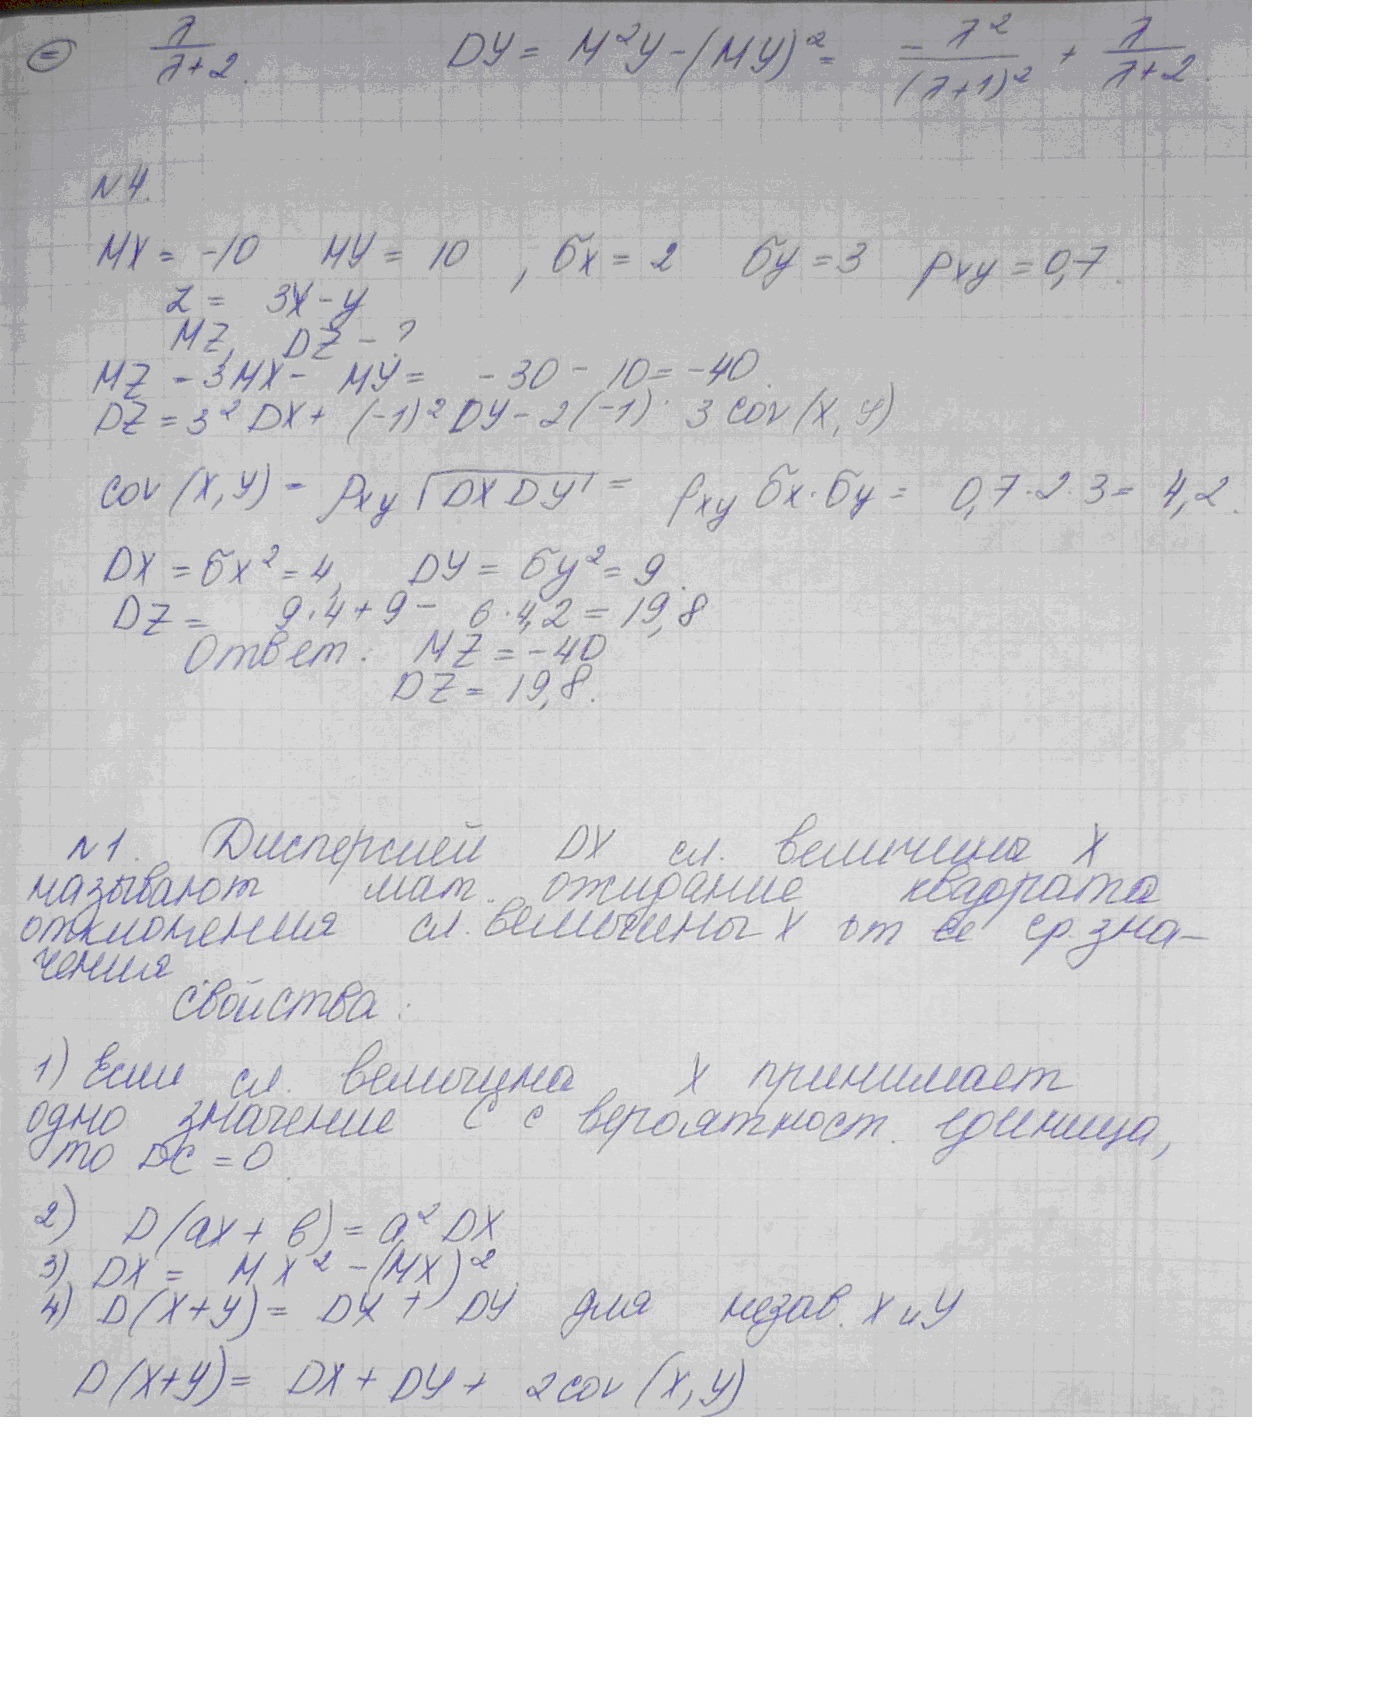 = λ/(λ+2). DY = M²Y - (MY)² = - λ²/(λ+1)² + λ/(λ+2).
N4.
MX = -10 MY = 10 , бx = 2 бy = 3 ρxy = 0,7.
Z = 3X - Y
MZ, DZ - ?
MZ = 3MX - MY = -30 - 10 = -40.
DZ = 3² DX + (-1)² DY - 2(-1)·3 cov(X, Y)
cov(X, Y) = ρxy √DX DY = ρxy бx·бy = 0,7·2·3 = 4,2.
DX = бx² = 4, DY = бy² = 9.
DZ = 9·4 + 9 - 6·4,2 = 19,8
Ответ: MZ = -40
DZ = 19,8.
N1. Дисперсией DX сл. величины X
называют мат. ожидание квадрата
отклонения сл. величины X от ее ср. зна-
чения
Свойства:
1) Если сл. величина X принимает
одно значение C с вероятност. единица,
то DC = 0
2) D(aX + b) = a² DX
3) DX = MX² - (MX)².
4) D(X+Y) = DX + DY для незав. X и Y
D(X+Y) = DX + DY + 2cov(X, Y)